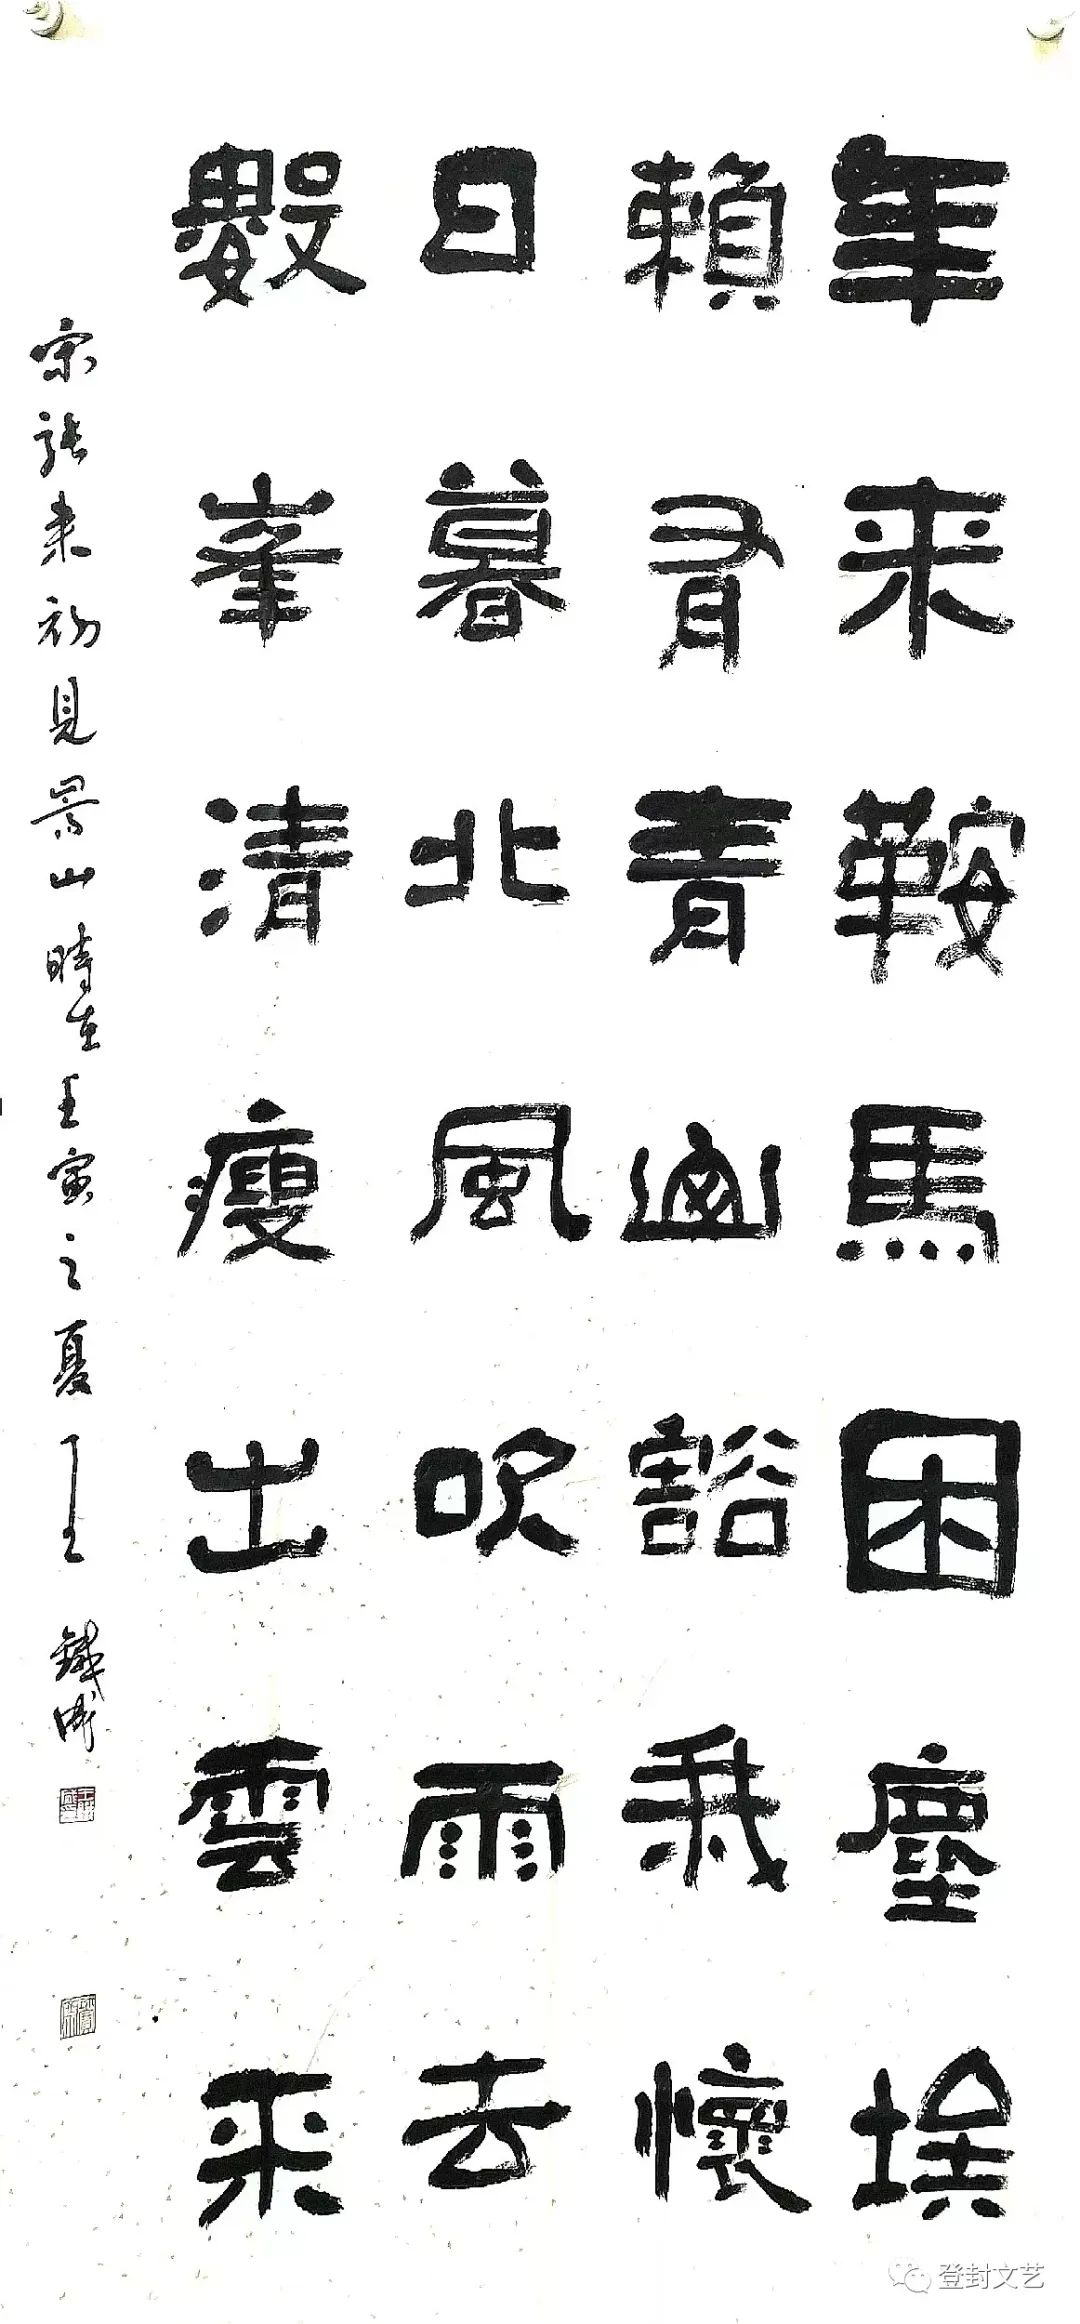 年来鞍馬困塵埃
賴有青山豁我懷
日暮北風吹雨去
數峯清瘦出雲来
宋張耒初見嵩山時在壬寅之夏王鐵
登封文艺